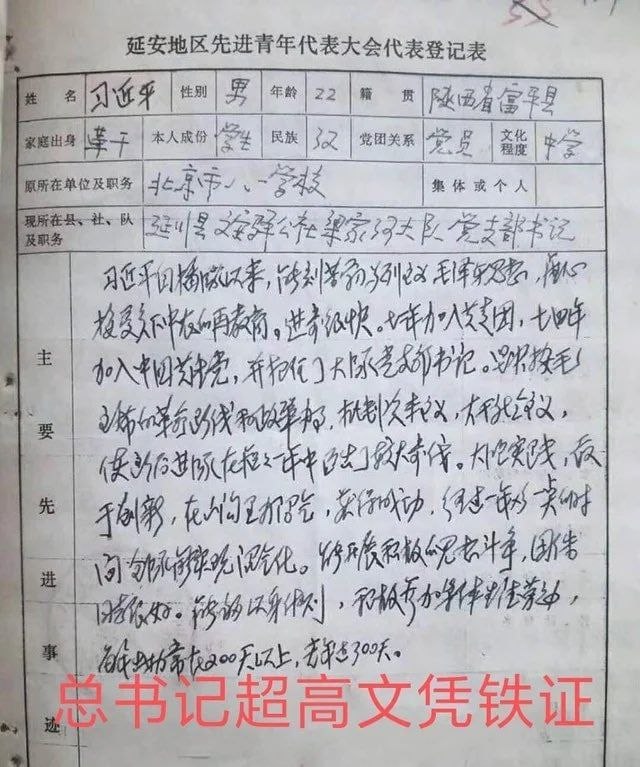 延安地区先进青年代表大会代表登记表
姓名 习近平 性别 男 年龄 22 籍贯 陕西省富平县
家庭出身 革干 本人成份 学生 民族 汉 党团关系 党员 文化程度 中学
原所在单位及职务 北京市八一学校 集体或个人
现所在县、社、队及职务 延川县文安驿公社梁家河大队党支部书记
主要先进事迹
习近平同 以来,能刻苦 马列主义毛泽东思想,虚心
接受贫下中农的再教育。进 快。七 年加入共青团,七四年
加入中国共产党,并担任了大队党支部书记。 按毛
主席的革命路线和政 办 ,批判资本主义,大干社会主义,
使 后进队在短短一年中 了较大 。大胆实践,敢
于创新,在 办 ,获得成功, 一年 时
间全 实现沼气化。能开展积极的思想斗争,团结
同志 好。能够以身作则,积极参加集体生产劳动,
每年出勤 常在200天以上,去年达300天。
总书记超高文凭铁证